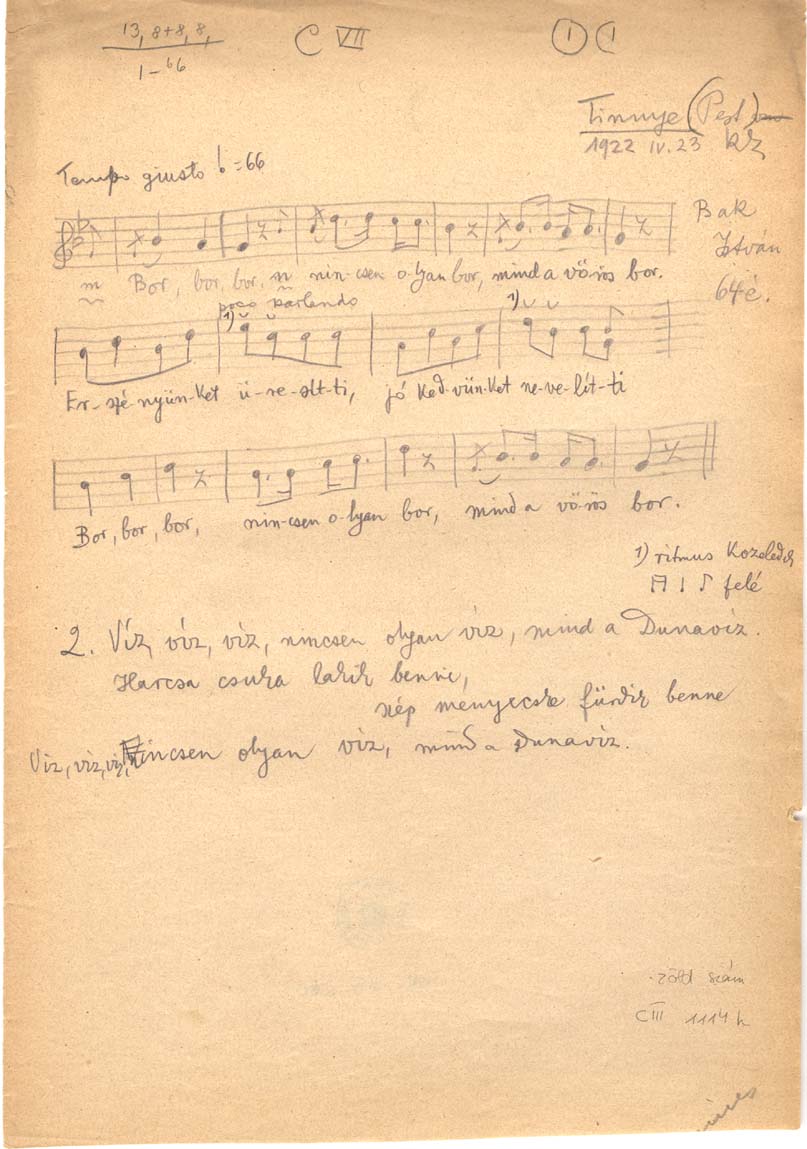 13, 8+8, 8,
1 – b6
C VII
1 C1
Tinnye (Pest)
1922 IV. 23 KZ
Tempo giusto = 66
Bak
István
64 é.
m Bor, bor, bor, n nin-csen o-lyan bor, mind a vö-rös bor.
poco parlando
1) 1)
Er-szé-nyün-ket ü-re-sít-ti, jó ked-vün-ket ne-ve-lít-ti
Bor, bor, bor, nin-csen o-lyan bor, mind a vö-rös bor.
1) ritmus közeledik
felé
2. Víz, víz, víz, nincsen olyan víz, mind a Dunavíz.
Harcsa csuka lakik benne,
szép menyecske fürdik benne
Víz, víz, víz, nincsen olyan víz, mind a Dunavíz.
zöld szám
C III 1114 h